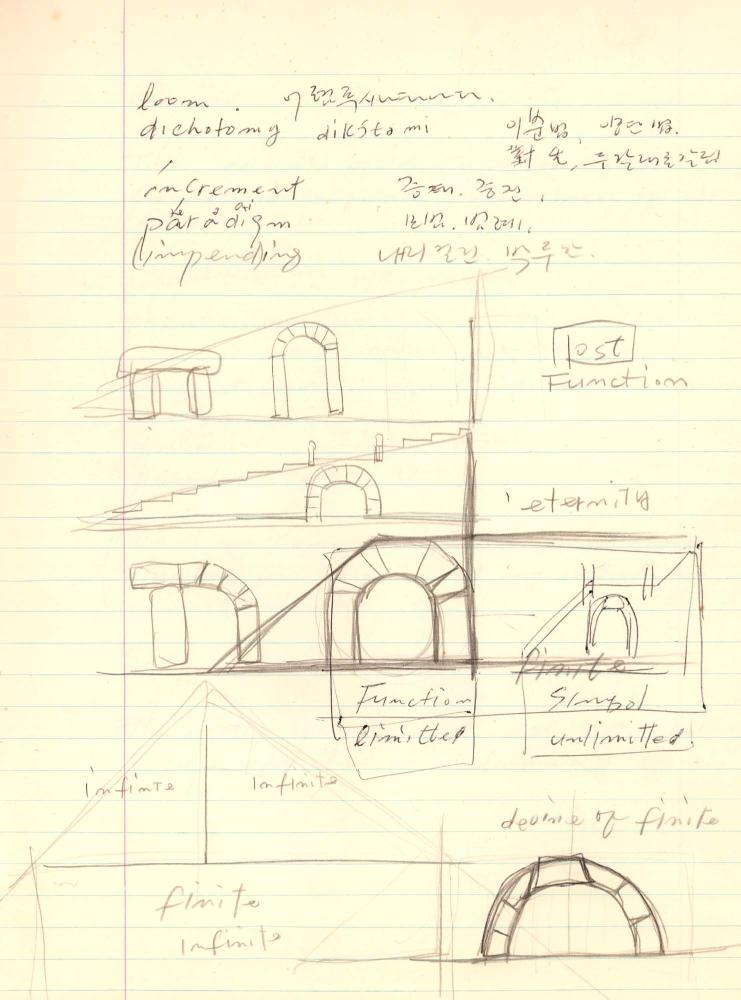 loom. 어렴풋시나타나다.
dichotomy dikótomi 이분법, 양단법.
두갈래로갈림
increment 증대. 증진,
paradigm 범례,
(impending) 내리걸린. 박두한.
lost
Function
eternity
finite
Function Simbol
limitted unlimitted.
infinite infinite
devine of finite
finite
infinite